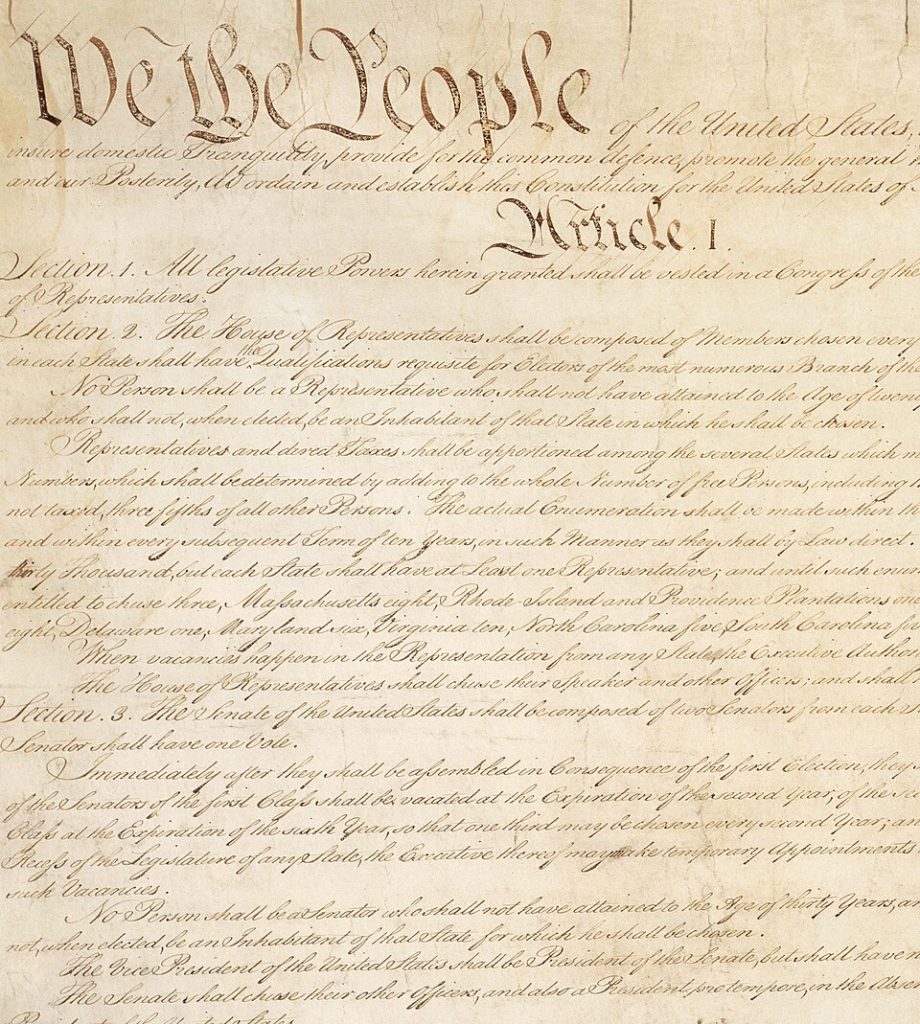 We the People of the United States,
insure domestic Tranquility, provide for the common defence, promote the general
and our Posterity, do ordain and establish this Constitution for the United States of
Article. I.
Section. 1. All legislative Powers herein granted shall be vested in a Congress of the
of Representatives.
Section. 2. The House of Representatives shall be composed of Members chosen every
in each State shall have the Qualifications requisite for Electors of the most numerous Branch of the
No Person shall be a Representative who shall not have attained to the Age of twen
and who shall not, when elected, be an Inhabitant of that State in which he shall be chosen.
Representatives and direct Taxes shall be apportioned among the several States which m
Numbers, which shall be determined by adding to the whole Number of free Persons, including
not taxed, three fifths of all other Persons. The actual Enumeration shall be made within th
and within every subsequent Term of ten Years, in such Manner as they shall by Law direct.
thirty Thousand, but each State shall have at Least one Representative; and until such enum
entitled to chuse three, Massachusetts eight, Rhode-Island and Providence Plantations on
eight, Delaware one, Maryland six, Virginia ten, North Carolina five, South Carolina fiv
When vacancies happen in the Representation from any State, the Executive Author
The House of Representatives shall chuse their Speaker and other Officers; and shall
Section. 3. The Senate of the United States shall be composed of two Senators from each
Senator shall have one Vote.
Immediately after they shall be assembled in Consequence of the first Election, they
of the Senators of the first Class shall be vacated at the Expiration of the second Year, of the sec
Class at the Expiration of the sixth Year, so that one third may be chosen every second Year; an
Recess of the Legislature of any State, the Executive thereof may make temporary Appointments
such Vacancies.
No Person shall be a Senator who shall not have attained to the Age of thirty Years, an
not, when elected, be an Inhabitant of that State for which he shall be chosen.
The Vice President of the United States shall be President of the Senate, but shall have n
The Senate shall chuse their other Officers, and also a President pro tempore, in the Absen
President of the United States.